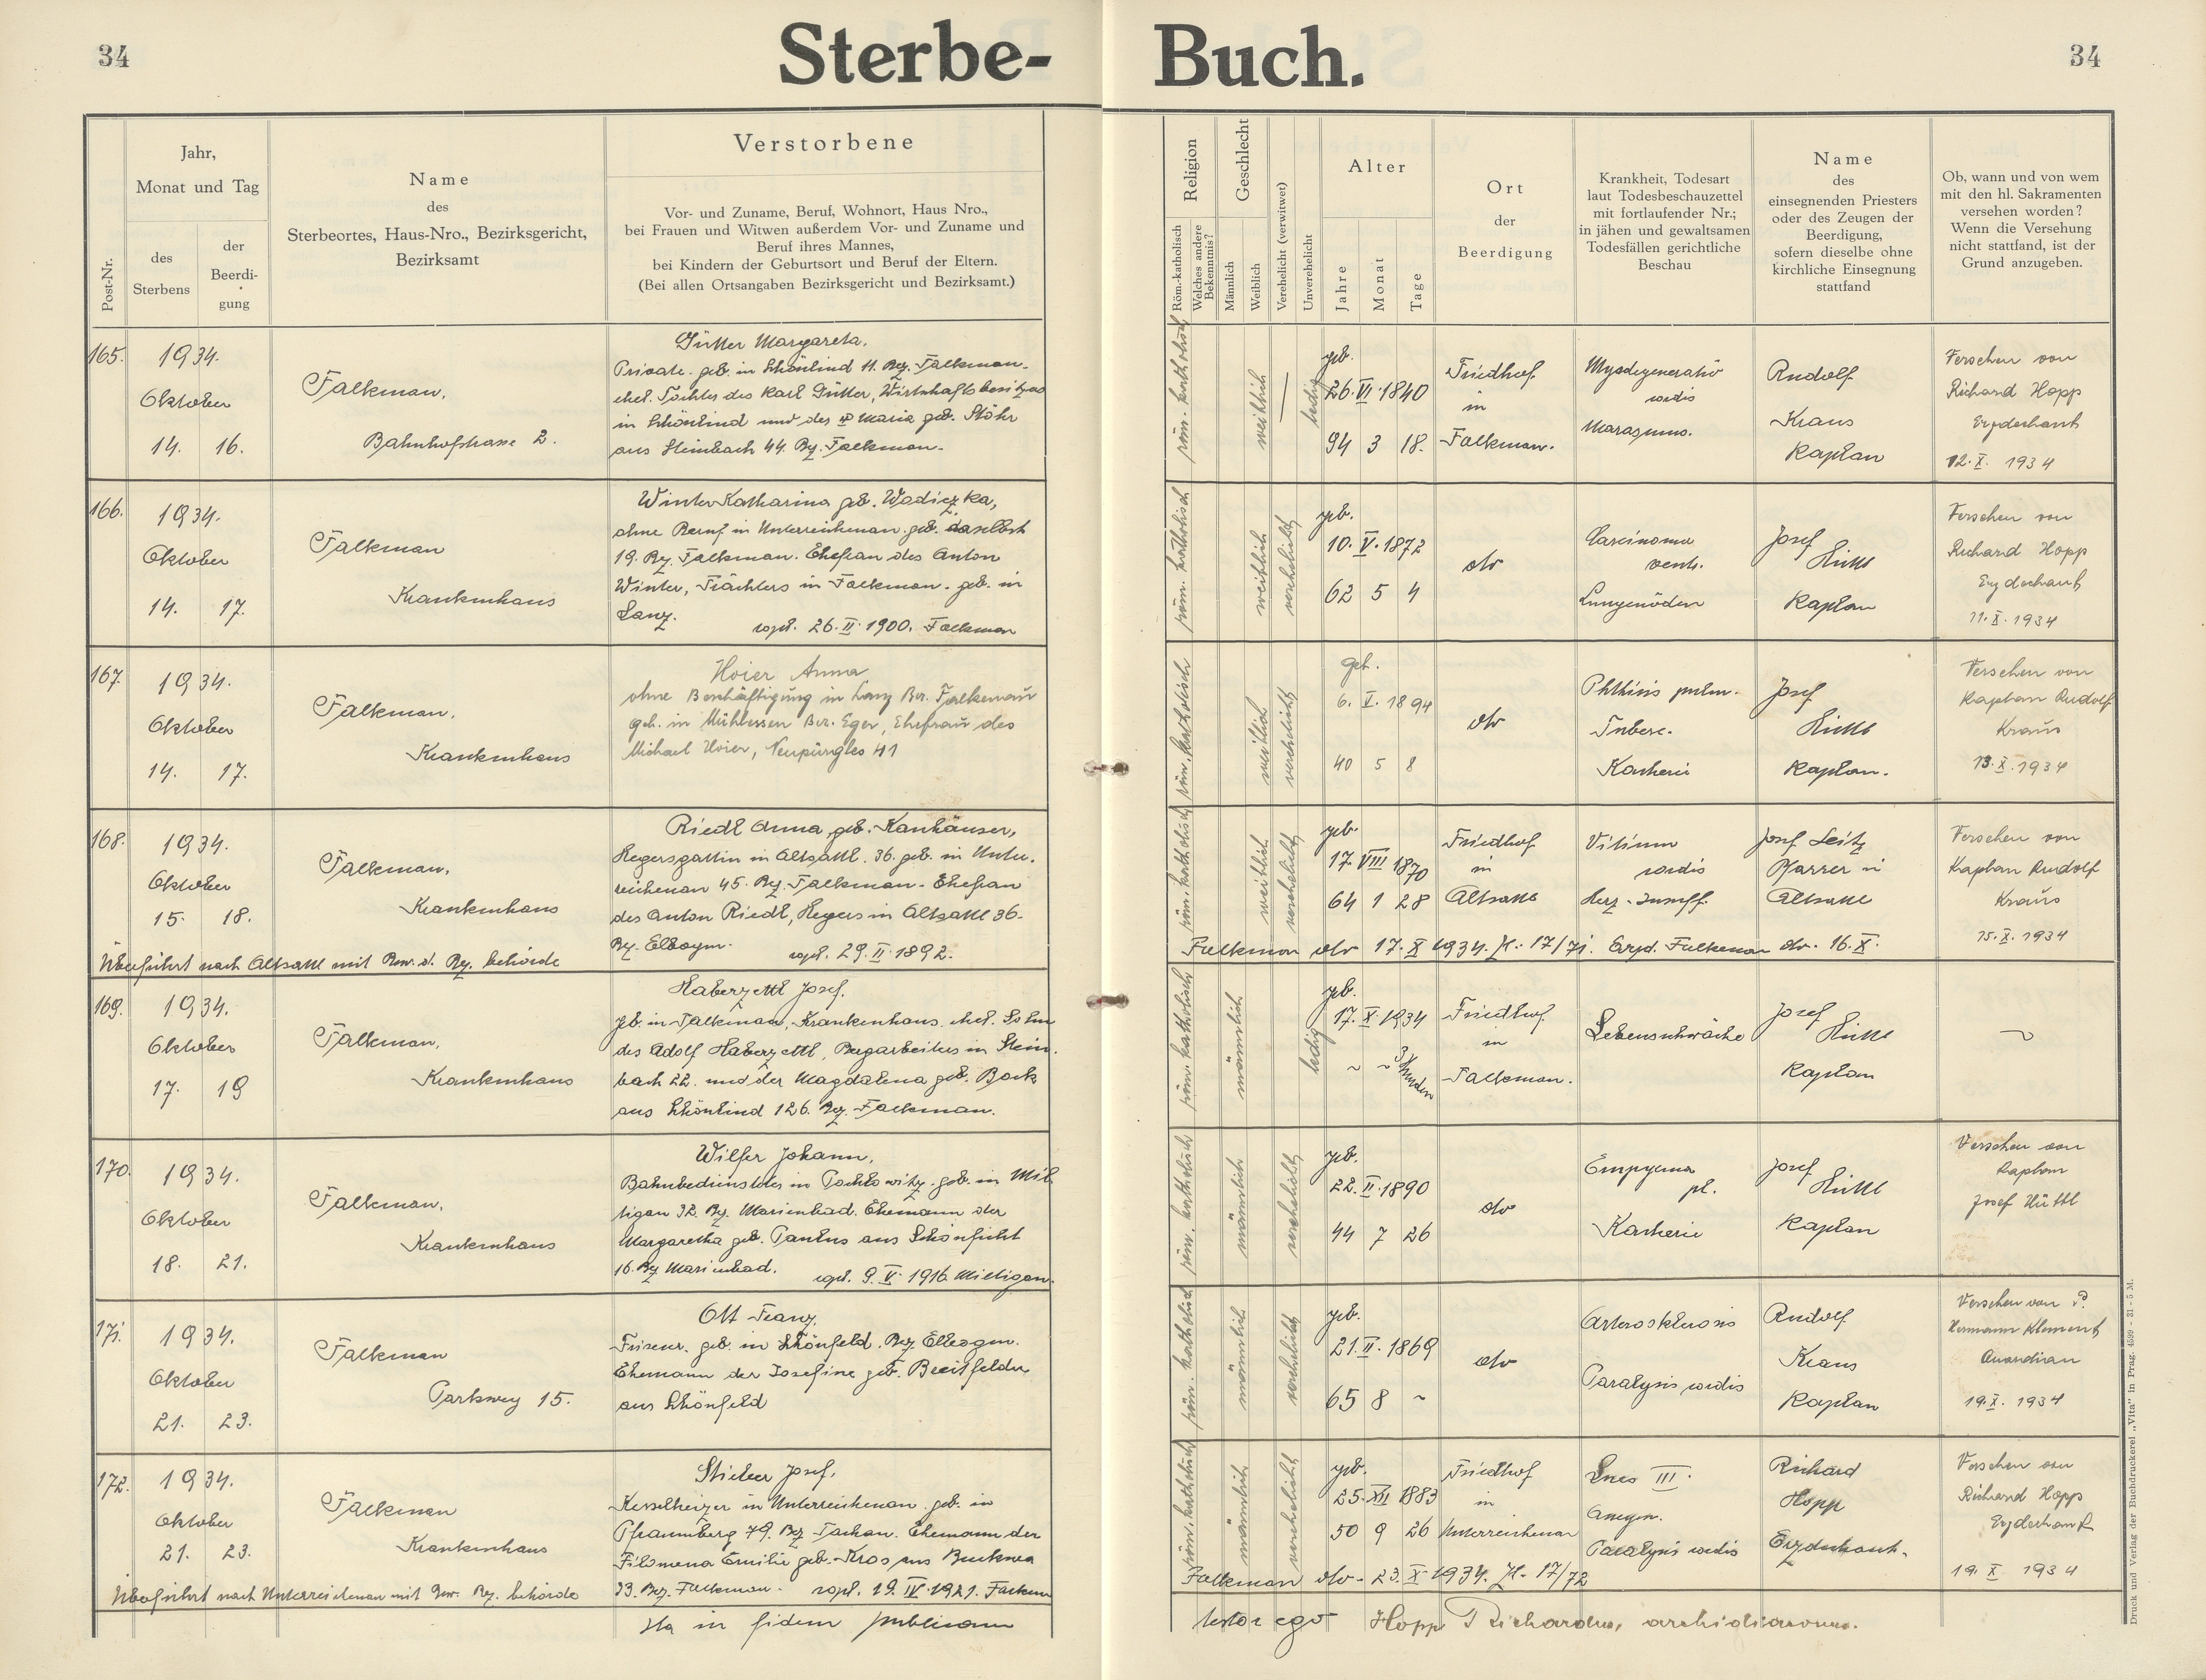 34
Sterbe-
Buch.
34
Post-Nr.
Jahr,
Monat und Tag
des
Sterbens
der
Beerdi-
gung
Name
des
Sterbeortes, Haus-Nro., Bezirksgericht,
Bezirksamt
Verstorbene
Vor- und Zuname, Beruf, Wohnort, Haus Nro.,
bei Frauen und Witwen außerdem Vor- und Zuname und
Beruf ihres Mannes,
bei Kindern der Geburtsort und Beruf der Eltern.
(Bei allen Ortsangaben Bezirksgericht und Bezirksamt.)
Religion
Röm.-katholisch
Welches andere
Bekenntnis?
Geschlecht
Männlich
Weiblich
Verehelicht (verwitwet)
Unverehelicht
Alter
Jahre
Monat
Tage
Ort
der
Beerdigung
Krankheit, Todesart
laut Todesbeschauzettel
mit fortlaufender Nr.;
in jähen und gewaltsamen
Todesfällen gerichtliche
Beschau
Name
des
einsegnenden Priesters
oder des Zeugen der
Beerdigung,
sofern dieselbe ohne
kirchliche Einsegnung
stattfand
Ob, wann und von wem
mit den hl. Sakramenten
versehen worden?
Wenn die Versehung
nicht stattfand, ist der
Grund anzugeben.
165.
1934.
Oktober
14. 16.
Falkenau,
Bahnhofstrasse 2.
Gütter Margareta,
Private. geb. in Schönlind 11. Bez. Falkenau.
ehel. Tochter des Karl Gütter, Wirtschaftsbesitzers
in Schönlind und der Maria geb. Stöhr
aus Steinbach 44. Bez. Falkenau.
röm. katholisch
weiblich
ledig
geb.
26. VI. 1840
94 3 18.
Friedhof
in
Falkenau.
Myodegeneratio
cordis
Marasmus.
Rudolf
Kraus
Kaplan
Versehen von
Richard Hopp
Erzdechant
12. X. 1934
166.
1934.
Oktober
14. 17.
Falkenau
Krankenhaus
Winter Katharina geb. Wodiczka,
ohne Beruf in Unterreichenau. geb. daselbst
19. Bez. Falkenau. Ehefrau des Anton
Winter, Trächters in Falkenau. geb. in
Lanz.
copul. 26. II. 1900. Falkenau
röm. katholisch
weiblich
verehelicht
geb.
10. V. 1872
62 5 4
dto
Carcinoma
ventr.
Lungenödem
Josef
Hüttl
Kaplan
Versehen von
Richard Hopp
Erzdechant
11. X. 1934
167.
1934.
Oktober
14. 17.
Falkenau,
Krankenhaus
Hoier Anna
ohne Beschäftigung in Lanz Bez. Falkenau
geb. in Mühlessen Bez. Eger, Ehefrau des
Michael Hoier, Neupürgles 41
röm. katholisch
weiblich
verehelicht
geb.
6. V. 1894
40 5 8
dto
Phthisis pulm.
Tuberc.
Kacherie
Josef
Hüttl
Kaplan.
Versehen von
Kaplan Rudolf
Kraus
13. X. 1934
168.
1934.
Oktober
15. 18.
Falkenau,
Krankenhaus
Riedl Anna geb. Kanhäuser,
Hegersgattin in Altsattl. 36. geb. in Unter-
reichenau 45. Bez. Falkenau. Ehefrau
des Anton Riedl, Hegers in Altsattl 36.
Bez. Elbogen. copul. 29. II. 1892.
röm. katholisch
weiblich
verehelicht
geb.
17. VIII 1870
64 1 28
Friedhof
in
Altsattl
Vitium
cordis
Herz-Insuff.
Josef Seitz
Pfarrer in
Altsattl
Versehen von
Kaplan Rudolf
Kraus
15. X. 1934
Überführt nach Altsattl mit Bew. d. Bez. behörde
Falkenau dto 17. X 1934. Z. 17/71. Erzd. Falkenau dto. 16. X.
169.
1934.
Oktober
17. 19
Falkenau,
Krankenhaus
Haberzettl Josef,
geb. in Falkenau, Krankenhaus. ehel. Sohn
des Adolf Haberzettl, Bergarbeiters in Stein-
bach 22. und der Magdalena geb. Bock
aus Schönlind 126. Bez. Falkenau.
röm. katholisch
männlich
ledig
geb.
17. X. 1934
~ ~ 3 Stunden
Friedhof
in
Falkenau.
Lebensschwäche
Josef
Hüttl
Kaplan
~
170.
1934.
Oktober
18. 21.
Falkenau,
Krankenhaus
Wilfer Johann,
Bahnbediensteter in Pochlowitz. geb. in Mil-
tigau 32. Bez. Marienbad. Ehemann der
Margaretha geb. Paulus aus Schönficht
16. Bez Marienbad. copul. 9. V. 1916. Miltigau.
röm. katholisch
männlich
verehelicht
geb.
22. II. 1890
44 7 26
dto
Empyema
pl.
Kacherie
Josef
Hüttl
Kaplan
Versehen von
Kaplan
Josef Hüttl
171.
1934.
Oktober
21. 23.
Falkenau
Parkweg 15.
Ott Franz,
Friseur. geb. in Schönfeld. Bez. Elbogen.
Ehemann der Josefine geb. Breitfelder
aus Schönfeld
röm. katholisch
männlich
verehelicht
geb.
21. II. 1869
65 8 ~
dto
Arterosklerosis
Paralysis cordis
Rudolf
Kraus
Kaplan
Versehen von P.
Hermann Klement
Quardian
19. X. 1934
172.
1934.
Oktober
21. 23.
Falkenau
Krankenhaus
Stieber Josef,
Kesselheizer in Unterreichenau. geb. in
Pfraumberg 79. Bez Tachau. Ehemann der
Filomena Emilie geb. Kros aus Buckwa
33. Bez. Falkenau. copul. 19. IV. 1921. Falkenau
röm. katholisch
männlich
verehelicht
geb.
25. XII 1883
50 9 26
Friedhof
in
Unterreichenau
Lues III.
Aneurn.
Paralysis cordis
Richard
Hopp
Erzdechant.
Versehen von
Richard Hopp
Erzdechant
19. X 1934
Überführt nach Unterreichenau mit Bew. Bez. behörde
Falkenau dto. 23. X 1934. Z. 17/72
Ita in fidem publicam
testor ego Hopp Richardus, archidiaconus.
Druck und Verlag der Buchdruckerei „Vita" in Prag. 4599 - 31 - 5 M.